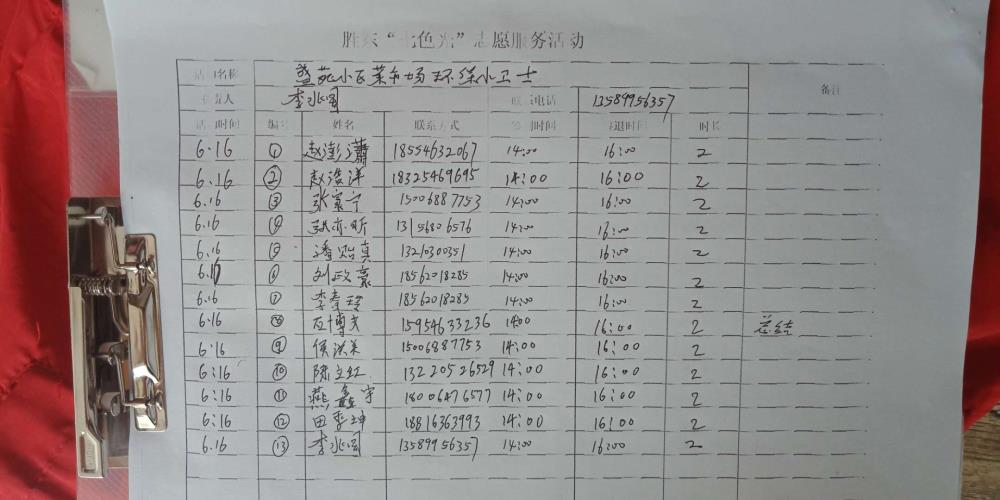 胜东“七色光”志愿服务活动
活动名称 盛苑小区菜市场环保小卫士 备注
负责人 李兆国 联系电话 13589956357
活动时间 编号 姓名 联系方式 签到时间 签退时间 时长
6.16 ① 赵澎潇 18554632067 14:00 16:00 2
6.16 ② 赵浚洋 18325469695 14:00 16:00 2
6.16 ③ 张寰宁 15006887753 14:00 16:00 2
6.16 ④ 亦昕 13156806576 14:00 16:00 2
6.16 ⑤ 潘贻真 13210300351 14:00 16:00 2
6.16 ⑥ 刘政豪 18562018285 14:00 16:00 2
6.16 ⑦ 李春玲 18562018285 14:00 16:00 2
6.16 ⑧ 博文 15954633236 14:00 16:00 2 总结
6.16 ⑨ 侯洪美 15006887753 14:00 16:00 2
6:16 ⑩ 陈立红 13220526529 14:00 16:00 2
6:16 ⑪ 燕鑫宇 18006476577 14:00 16:00 2
6:16 ⑫ 田季坤 18816363993 14:00 16:00 2
6.16 ⑬ 李兆国 13589956357 14:00 16:00 2